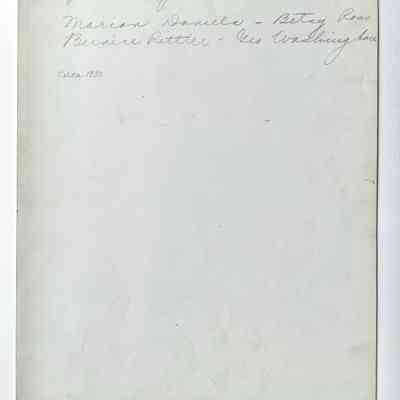 Marion Daniels - Betsy Ross
Bernice Rettler - Geo Washington
Circa 1930